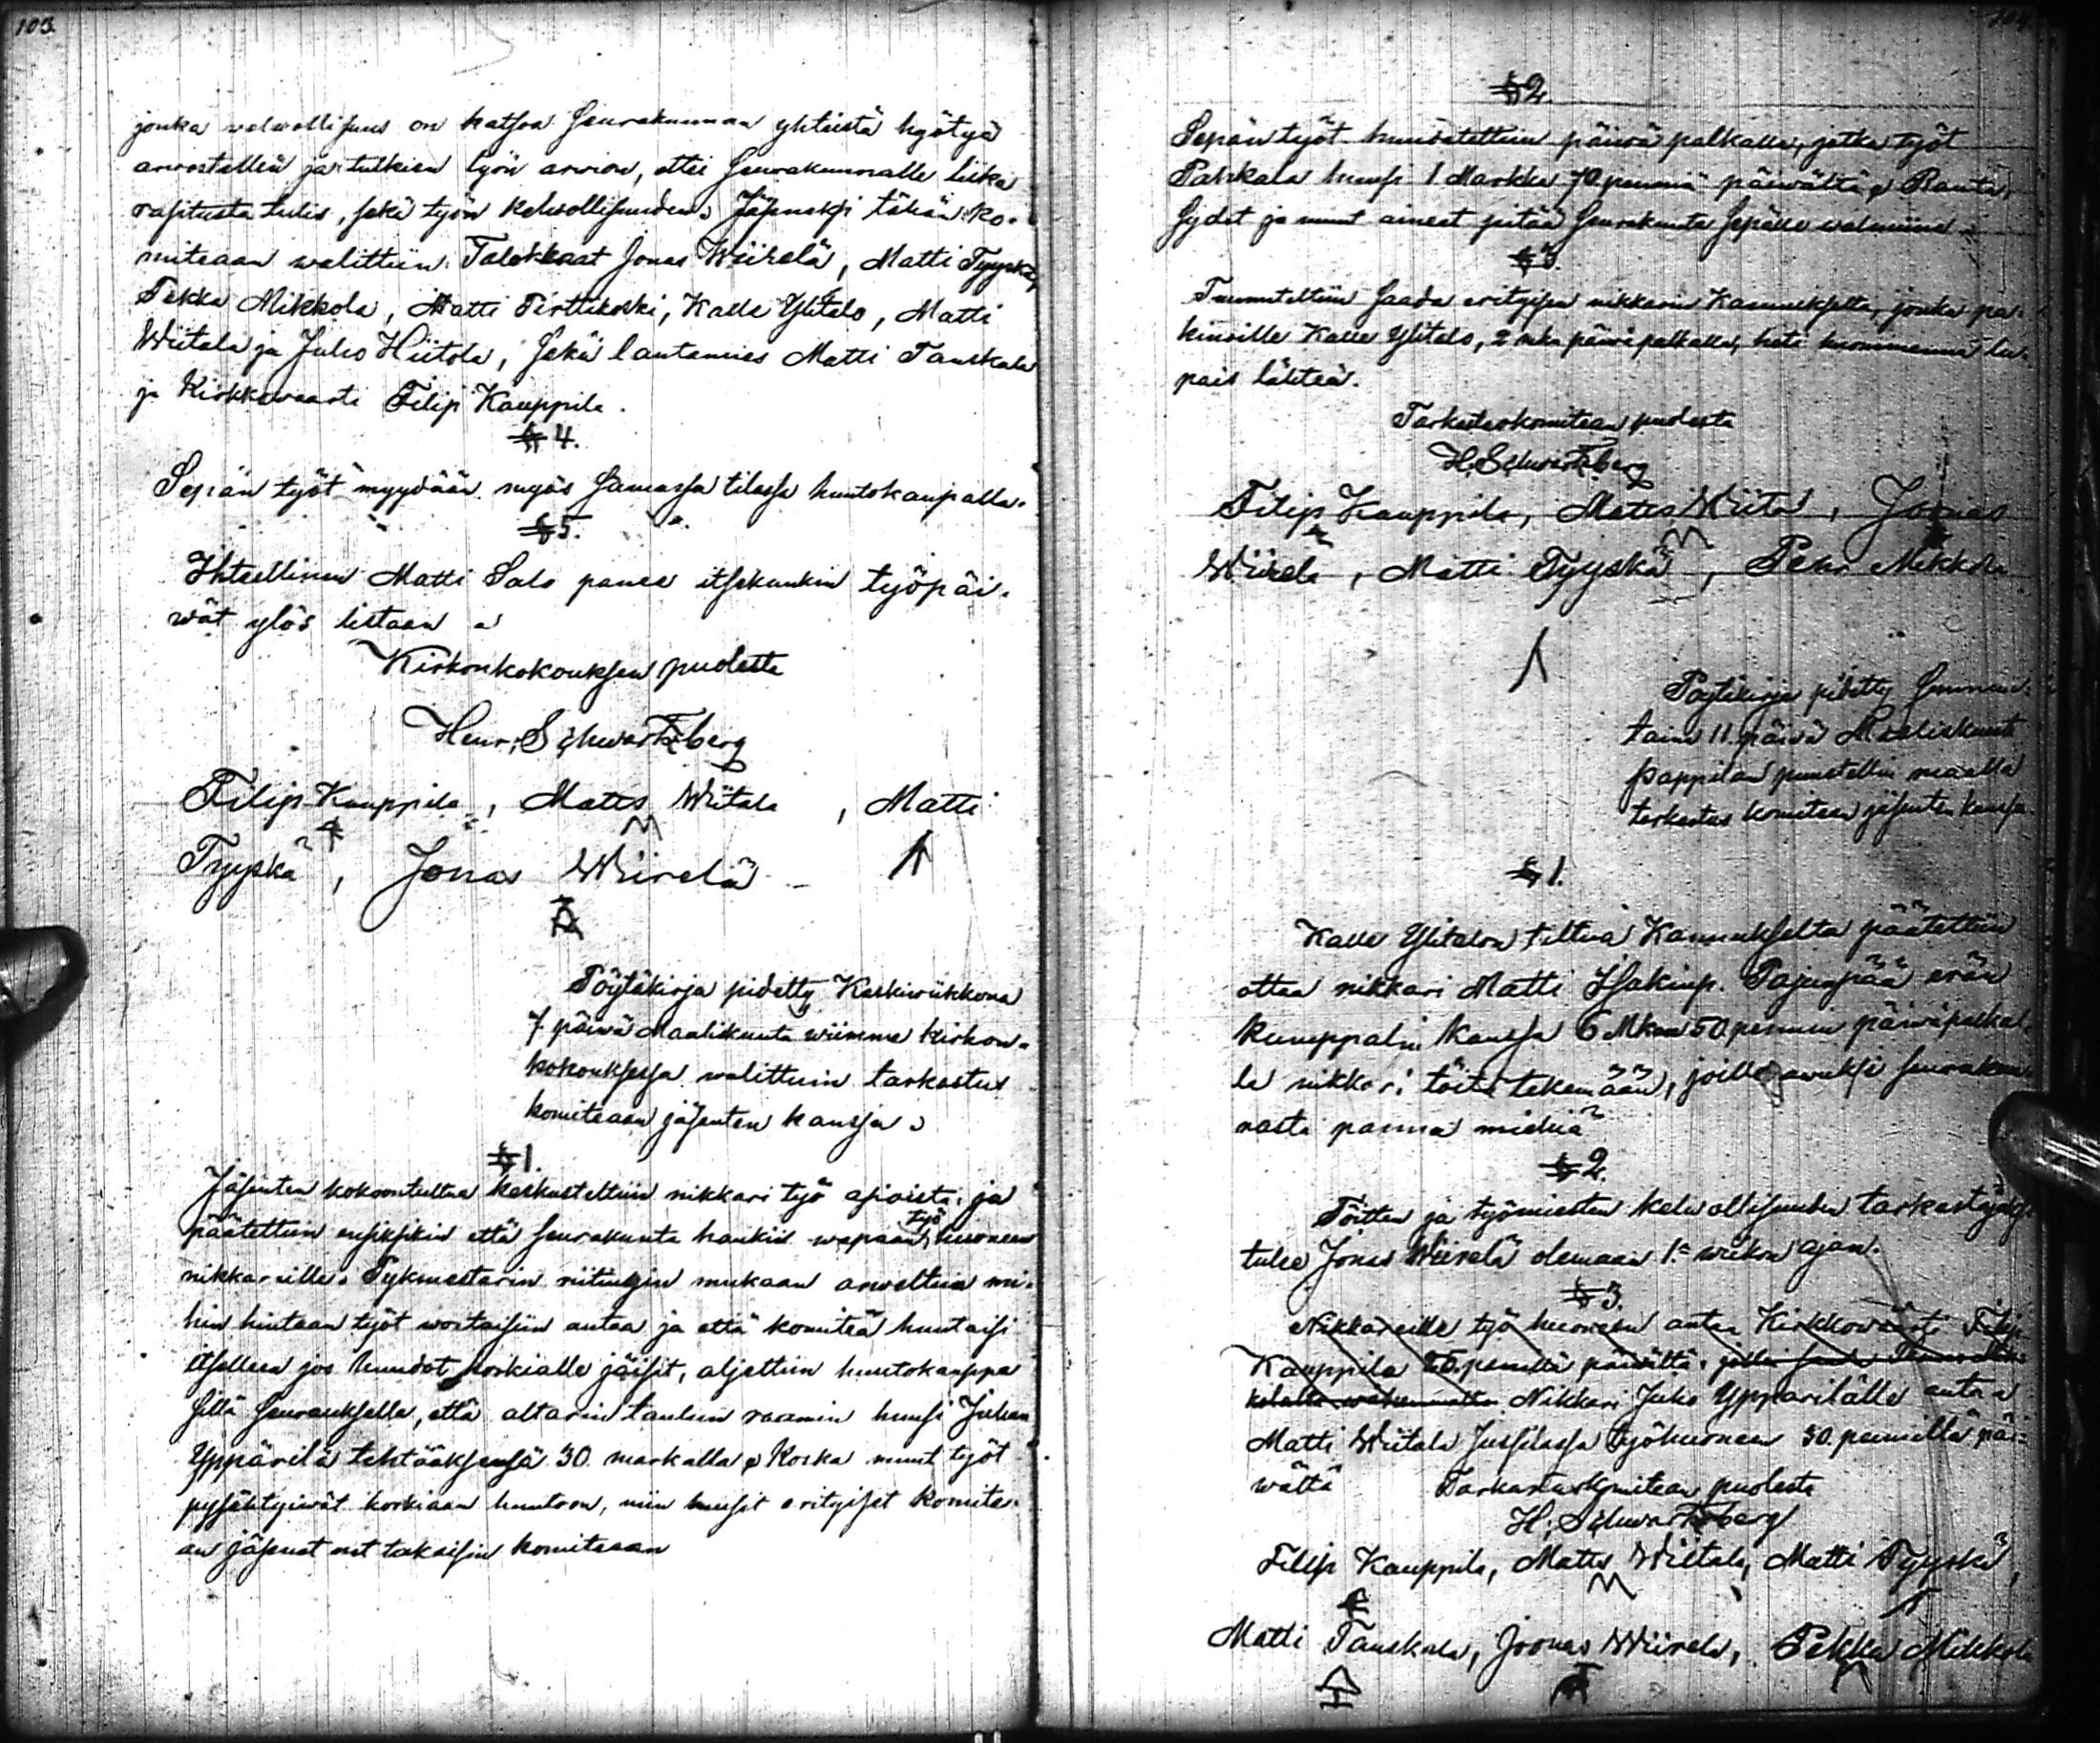 103.
jonka welwollisuus on katsoa Seurakunnan yhteistä hyötyä
arwostellen ja tutkien työn arwion, ettei Seurakunnalle liika
rasitusta tulis, sekä työn kelwollisuuden. Jäseneksi tähän ko-
miteaan walittiin: Talokkaat Jonas Wiirelä, Matti Tyyskä,
Pekka Mikkola, Matti Perttikoski, Kalle Ylitalo, Matti
Wiitala ja Juho Hiitola, sekä lautamies Matti Tanskala
ja Kirkkowaarti Filip Kauppila.
§ 4.
Sepän työt myydään myös samassa tilassa huutokaupalla.
§ 5.
Ihteellinen Matti Salo panee itsekunkin työpäi-
wät ylös listaan
Kirkonkokouksen puolesta
Henr. Schwartzberg
Filip Kauppila, Matts Wiitala, Matti
Tyyskä, Jonas Wiirelä
Pöytäkirja pidetty Keskiwiikkona
7 päiwä Maaliskuuta wiimme kirkon-
kokouksessa walittuin tarkastus
komiteaan jäsenten kanssa
§ 1.
Jäsenten kokoontultua keskusteltiin nikkari työ asioista ja
päätettiin ensiksikin että seurakunta hankii wapaan työ huoneen
nikkareille. Tykmestarin riitingin mukaan arweltiin mi-
hin hintaan työt woitaisiin antaa ja että komiteä huutaisi
itselleen jos huudot korkialle jäisit, aljettiin huutokauppa
sillä seurauksella, että altarin taulun raamin huusi Juhan
Yppärilä tehtääksensä 30 markalla Koska muut työt
pysähtyiwät korkiaan huutoon, niin huusit erityiset komite-
an jäsenet net takaisin komiteaan
§ 2
Sepän työt huudatettiin päiwä palkalla, jotka työt
huusi 1 Markka 70 penniä päiwältä Rauta,
Sydet ja muut ainest pitää Seurakunta Sepälle walmiina
§ 3.
Tuumiteltiin saada erityisen nikkarin Kannukselta, jonka pa-
kinoille Kalle Ylitalo, 2 mka päiwä palkalla, heti huomenna lu-
pais lähteä.
Tarkastuskomitean puolesta
H. Schwartzberg
Filip Kauppila, Matts Wiital, Joonas
Wiirelä, Matti Tyyskä, Pehr Mikkola
Pöytäkirja pidetty Sunnun-
taina 11 päiwä Maaliskuuta
Pappilan maalla
tarkastus komitean jäsenten kanssa
§ 1.
Kalle Ylitalon tultua Kannukselta päätettiin
ottaa nikkari Matti Isakinp. Pajunpää erään
kumppalin kanssa 6 Mkan 50 pennin päiwäpalkal-
la nikkari töitä tekemään, joille awuksi seurakun-
nasta panna miehiä
§ 2.
Töitten ja työmiesten kelwollisuuden tarkastajaksi
tulee Jonas Wiirelä olemaan 1:n wiikon ajan.
§ 3.
Nikkareille työ huoneen antaa Kirkkowaarti Filip
Kauppila penillä päiwältä
Nikkari Juho Yppärilälle antaa
Matti Wiitala Jussilassa työhuoneen 30 pennillä päi-
wältä
Tarkastuskomitean puolesta
H. Schwartzberg
Filip Kauppila, Matts Wiitala, Matti Tyyskä,
Matti Tanskala, Joonas Wiirelä, Pekka Mikkola